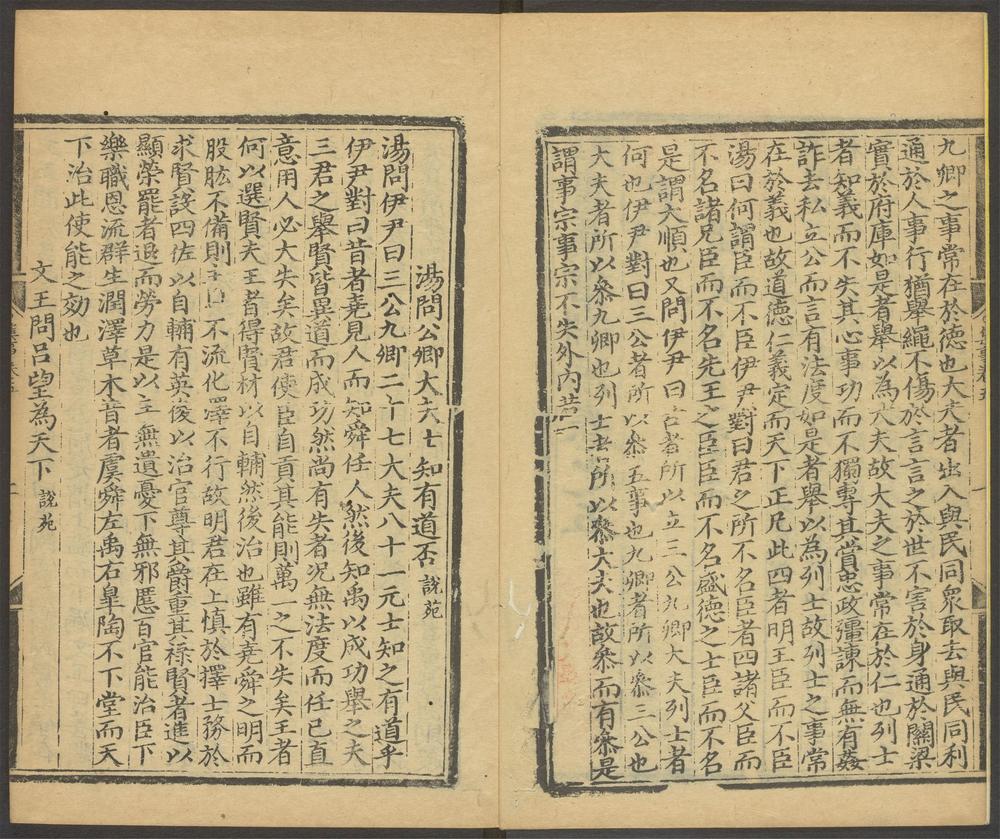 九卿之事常在於德也大夫者出入與民同衆取去與民同利
通於人事行猶舉繩不傷於言言之於世不害於身通於關梁
實於府庫如是者舉以為大夫故大夫之事常在於仁也列士
者知義而不失其心事功而不獨專其賞忠政彊諫而無有姦
詐去私立公而言有法度如是者舉以為列士故列士之事常
在於義也故道德仁義定而天下正凡此四者明王臣而不臣
湯曰何謂臣而不臣伊尹對曰君之所不名臣者四諸父臣而
不名諸兄臣而不名先王之臣臣而不名盛德之士臣而不名
是謂大順也又問伊尹曰古者所以立三公九卿大夫列士者
何也伊尹對曰三公者所以叅五事也九卿者所以叅三公也
大夫者所以叅九卿也列士者所以叅大夫也故叅而有叅是
謂事宗事宗不失外内若一
湯問公卿大夫士知有道否 說苑
湯問伊尹曰三公九卿二十七大夫八十一元士知之有道乎
伊尹對曰昔者堯見人而知舜任人然後知禹以成功舉之夫
三君之舉賢皆異道而成功然尚有失者况無法度而任已直
意用人必大失矣故君使臣自貢其能則萬一之不失矣王者
何以選賢夫王者得賢材以自輔然後治也雖有堯舜之明而
股肱不備則主 不流化澤不行故明君在上慎於擇士務於
求賢設四佐以自輔有英俊以治官尊其爵重其祿賢者進以
顯榮罷者退而勞力是以主無遺憂下無邪慝百官能治臣下
樂職恩流群生潤澤草木昔者虞舜左禹右臯陶不下堂而天
下治此使能之効也
文王問呂望為天下 說苑